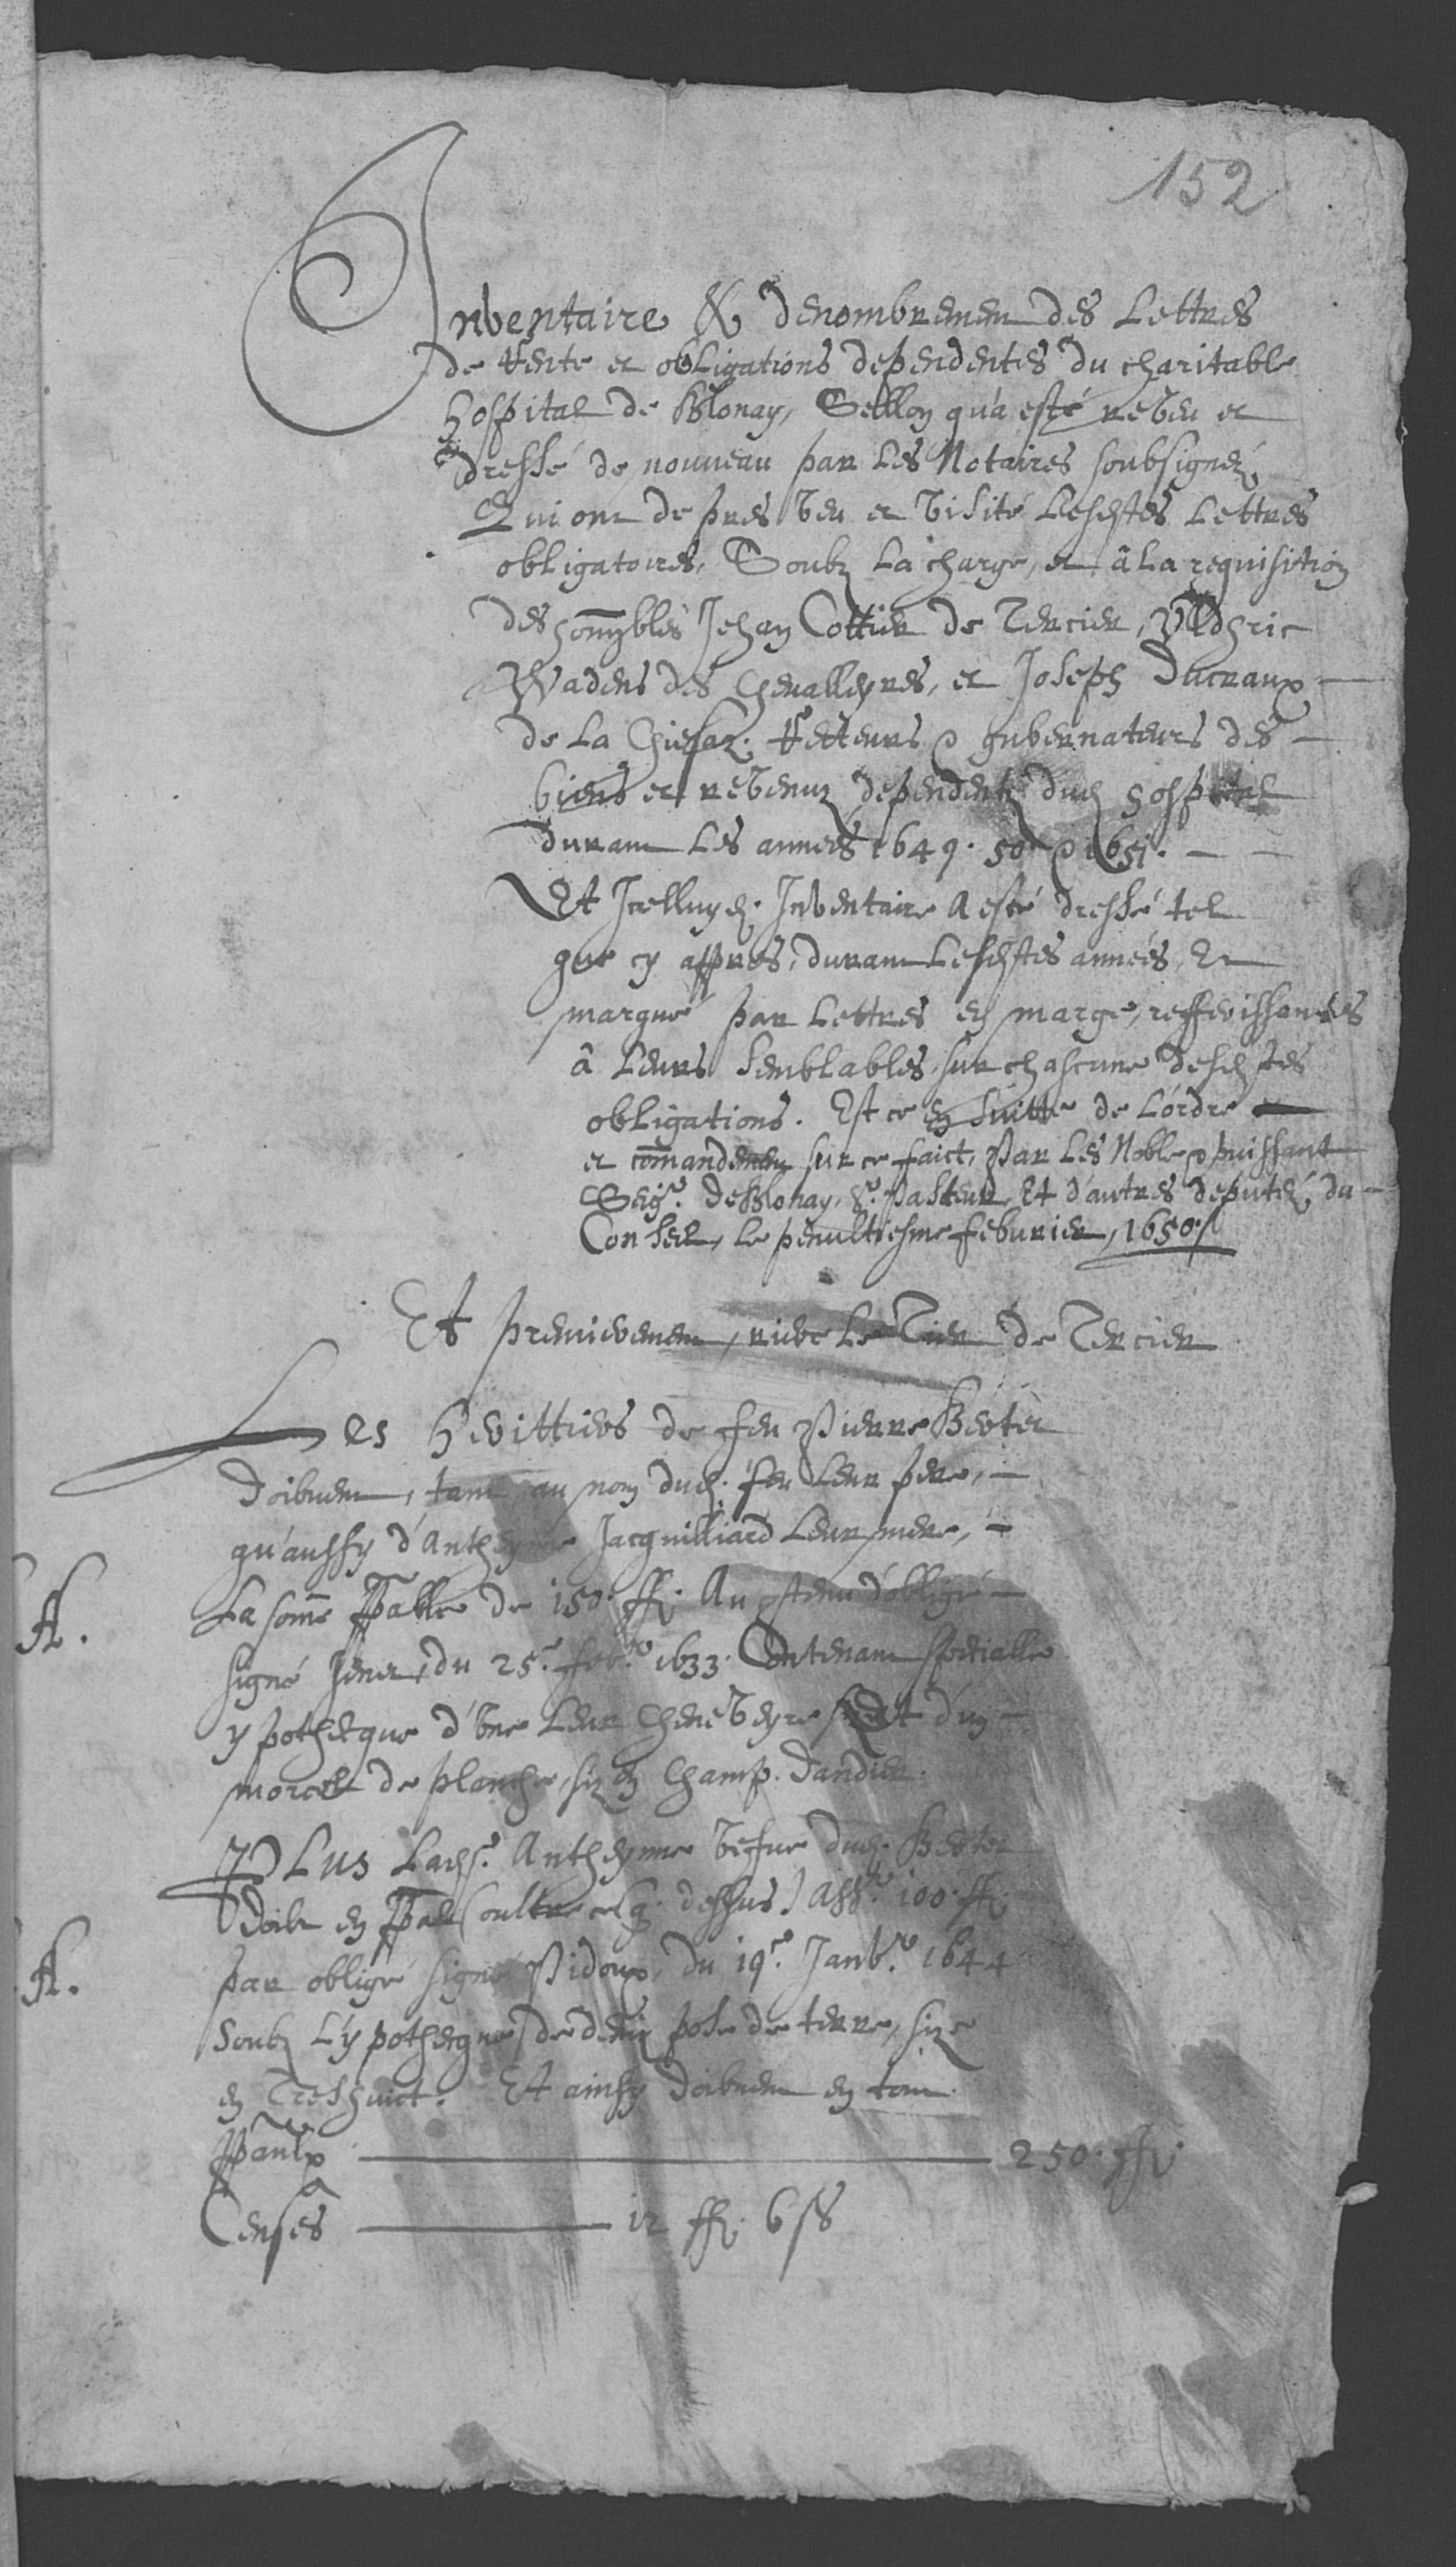 152
Inventaire & denombrement des Lettres
de Rente et obligations dependentes du charitable
Hospital de Blonay, Sellon qu'a esté reveu et
dressé de nouveau par les Notaires soubsignez
Qui ont de pres veu et visité lesdites Lettres
obligatoires, Soubz la charge, et à la requisition
des honnorables Jehan Cottier de Tercier, Uldric
Wadens des Chevalleyres, et Joseph Ducraux
de la Chiesaz. Recteurs & gubernateurs des
biens et revenuz dependentz dud hospital
durant les années 1649. 50 & 1651.
Et Icelluy d. Inventaire a esté dressé tel
que cy appres, durant lesdites années, Et
marqué par Lettres en marge, refferissantes
à leurs semblables, sur chascune desdites
obligations. Est ce en suitte de l'ordre
et comandement sur ce faict, Par les Noble & puissant
Seigr. de Blonay, Sr. Pasteur, Et d'autres deputez du
Conseil, le penultiesme febvrier, 1650
Et premierement, riere le Tier de Tercier
Les Herittiers de feu Pierre
doibvent, tant au nom dud. feu leur pere,
qu'aussy d'Antheyne Jacquilliard leur mere,
A.
La somme ppalle de 150. ff. Au d'obligé
signé du 25e. febr. 1633. Contenant specialle
ypotheque d'une leur Chenevyere et d'un
morcel de planche, siz en Champ. Dandier.
PLus Ladte. Antheyne vefve dud.
doibt en ppal (oultre ce q. dessus) 100. ff.
A.
par obligé signé Pidoux, du 19e. Janvr. 1644
Soubz l'ypotheque de demy pose de terre, size
en Et ainsy doibvent en tout
Ppaulx 250. ff.
Censes 12 ff. 6 ss